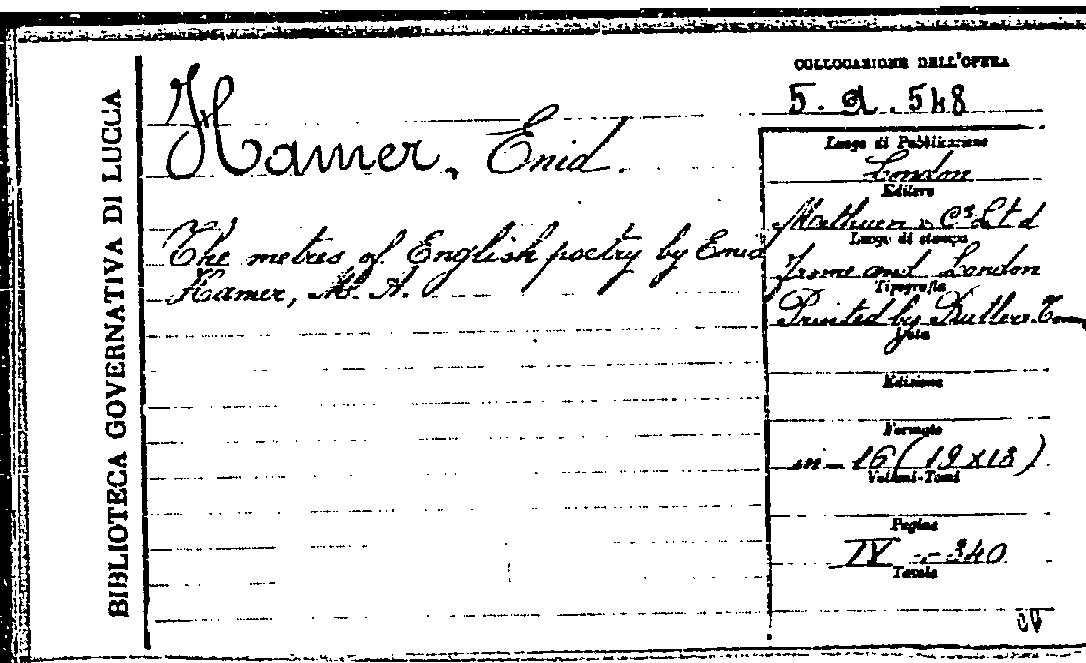 BIBLIOTECA GOVERNATIVA DI LUCCA
Hamer, Enid.
The metres of English poetry by Enid
Hamer, M. A.
COLLOCAZIONE DELL'OPERA
5. a. 548
Luogo di Pubblicazione
London
Editore
Methuen & Co Ltd
Luogo di stampa
Frome and London
Tipografia
Printed by Butler &
Data
Edizione
Formato
in-16 (19x13)
Volumi-Tomi
Pagine
IV - 340
Tavole